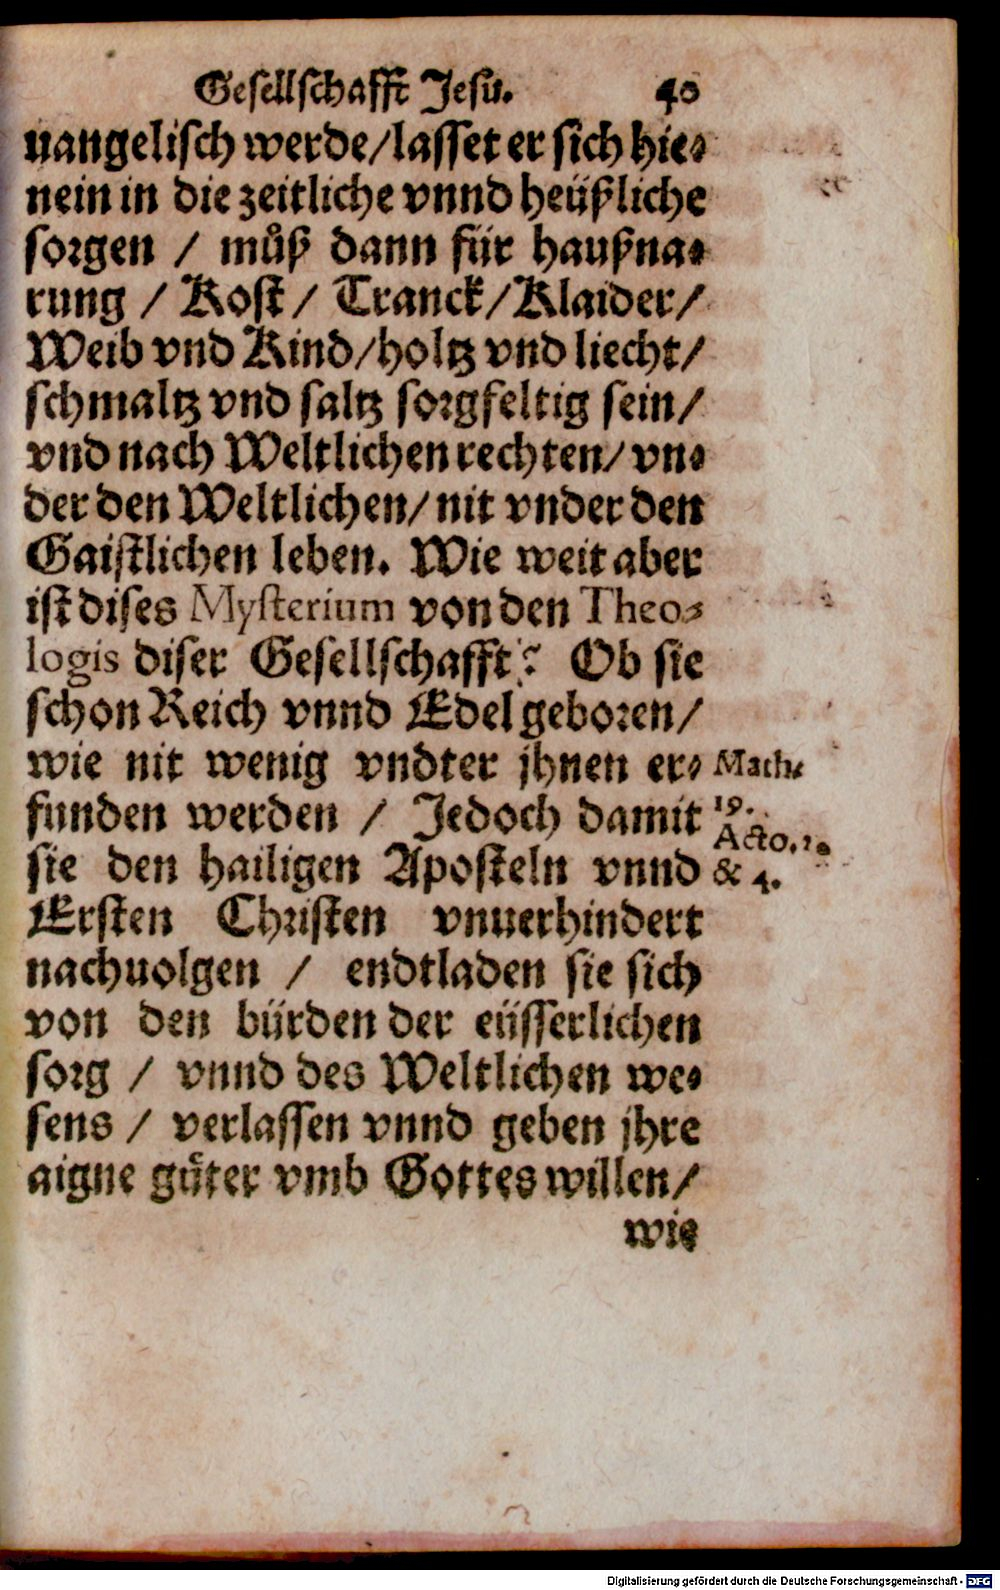 Gesellschafft Jesu. 40
uangelisch werde/lasset er sich hie⸗
nein in die zeitliche vnnd heüßliche
sorgen / můß dann für haußna⸗
rung / Kost / Tranck/Klaider/
Weib vnd Kind/holtz vnd liecht/
schmaltz vnd saltz sorgfeltig sein/
vnd nach Weltlichen rechten/vn⸗
der den Weltlichen/nit vnder den
Gaistlichen leben. Wie weit aber
ist dises Mysterium von den Theo⸗
logis diser Gesellschafft? Ob sie
schon Reich vnnd Edel geboren/
wie nit wenig vndter jhnen er⸗
funden werden / Jedoch damit
sie den hailigen Aposteln vnnd
Ersten Christen vnuerhindert
nachuolgen / endtladen sie sich
von den bürden der eüsserlichen
sorg / vnnd des Weltlichen we⸗
sens / verlassen vnnd geben jhre
aigne gůter vmb Gottes willen/
wie
Math.
19.
Acto. 2.
& 4.
Digitalisierung gefördert durch die Deutsche Forschungsgemeinschaft - DFG